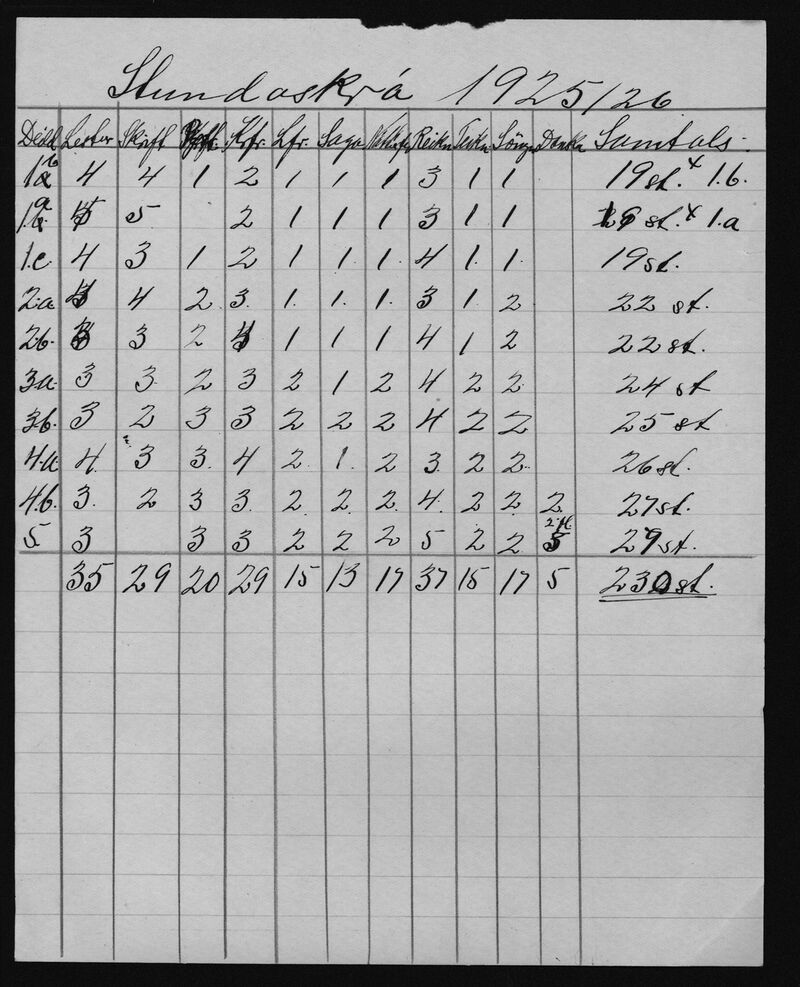 Stundaskrá 1925/26
Deild Lestur Skrift Krfr. Lfr. Saga Reikn Teikn Söng Danka Samtals.
1b 4 4 1 2 1 1 1 3 1 1 19 st. x 1.b.
1a 5 2 1 1 1 3 1 1 st. x 1.a
1.c. 4 3 1 2 1 1 1 4 1 1 19 st.
2.a 4 2 3 1 1 1 3 1 2 22 st.
2.b. 3 2 1 1 1 4 1 2 22 st.
3a 3 3 2 3 2 1 2 4 2 2 24 st
3b. 3 2 3 3 2 2 2 4 2 2 25 st
4.a 4 3 3 4 2 1 2 3 2 2 26 st.
4b. 3 2 3 3 2 2 2 4 2 2 2 27 st.
5. 3 3 3 2 2 2 5 2 2 29 st.
35 29 20 29 15 13 17 37 15 17 5 230 st.